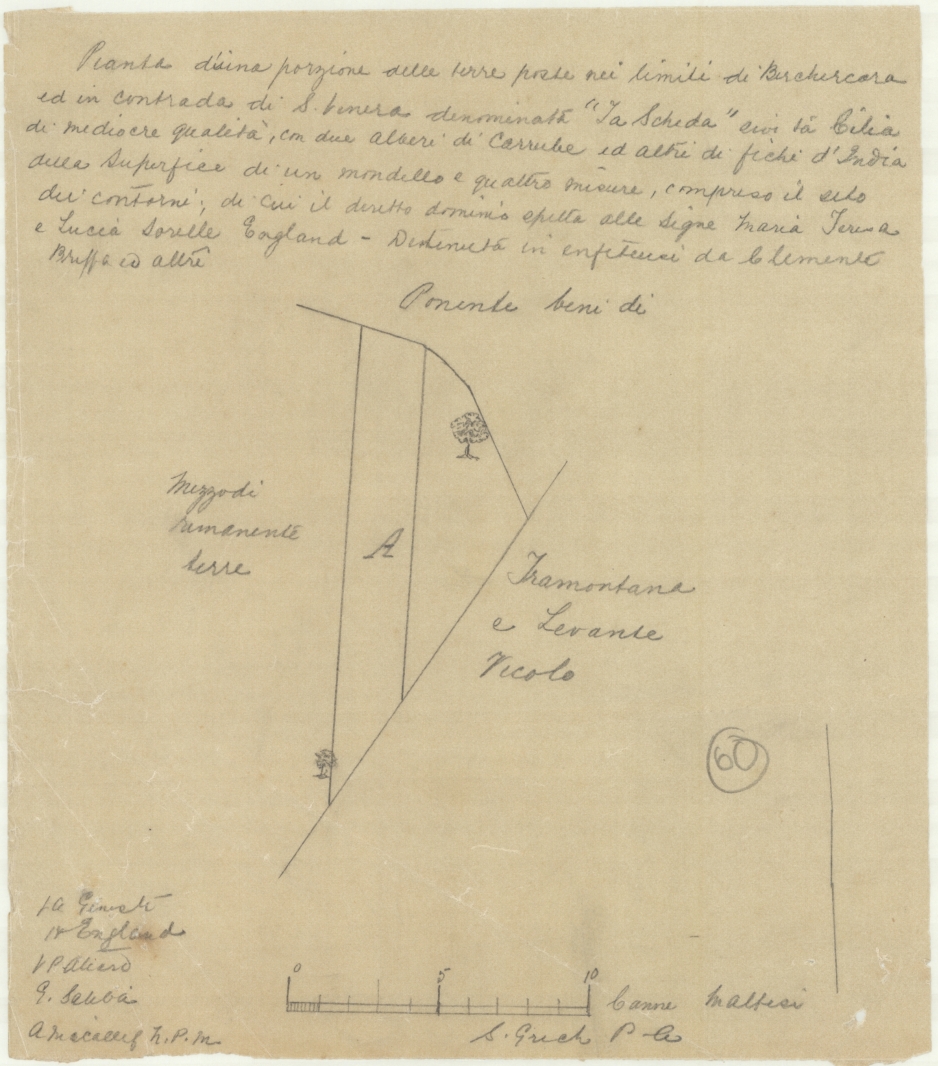 Pianta d'una porzione delle terre poste nei limiti di Birchercara
ed in contrada di S. Venera denominata "Ta Scheda" sivi ta Cilia
di mediocre qualità, con due alberi di Carrube ed altri di fichi d'India
della Superfice di un mondello e quattro misure, compreso il seto
dei contorni; di cui il diretto dominio spetta alle Signe Maria Teresa
e Lucia Sorelle England - Detenuta in enfiteusi da Clemente
Briffa ed altri
Ponente beni di
Mezzodi
rimanente
terre
A
Tramontana
e Levante
Vicolo
60
England
E. Sahba
A. Micallef N.P.M.
0 5 10
Canne Maltesi
S. Grech P. A